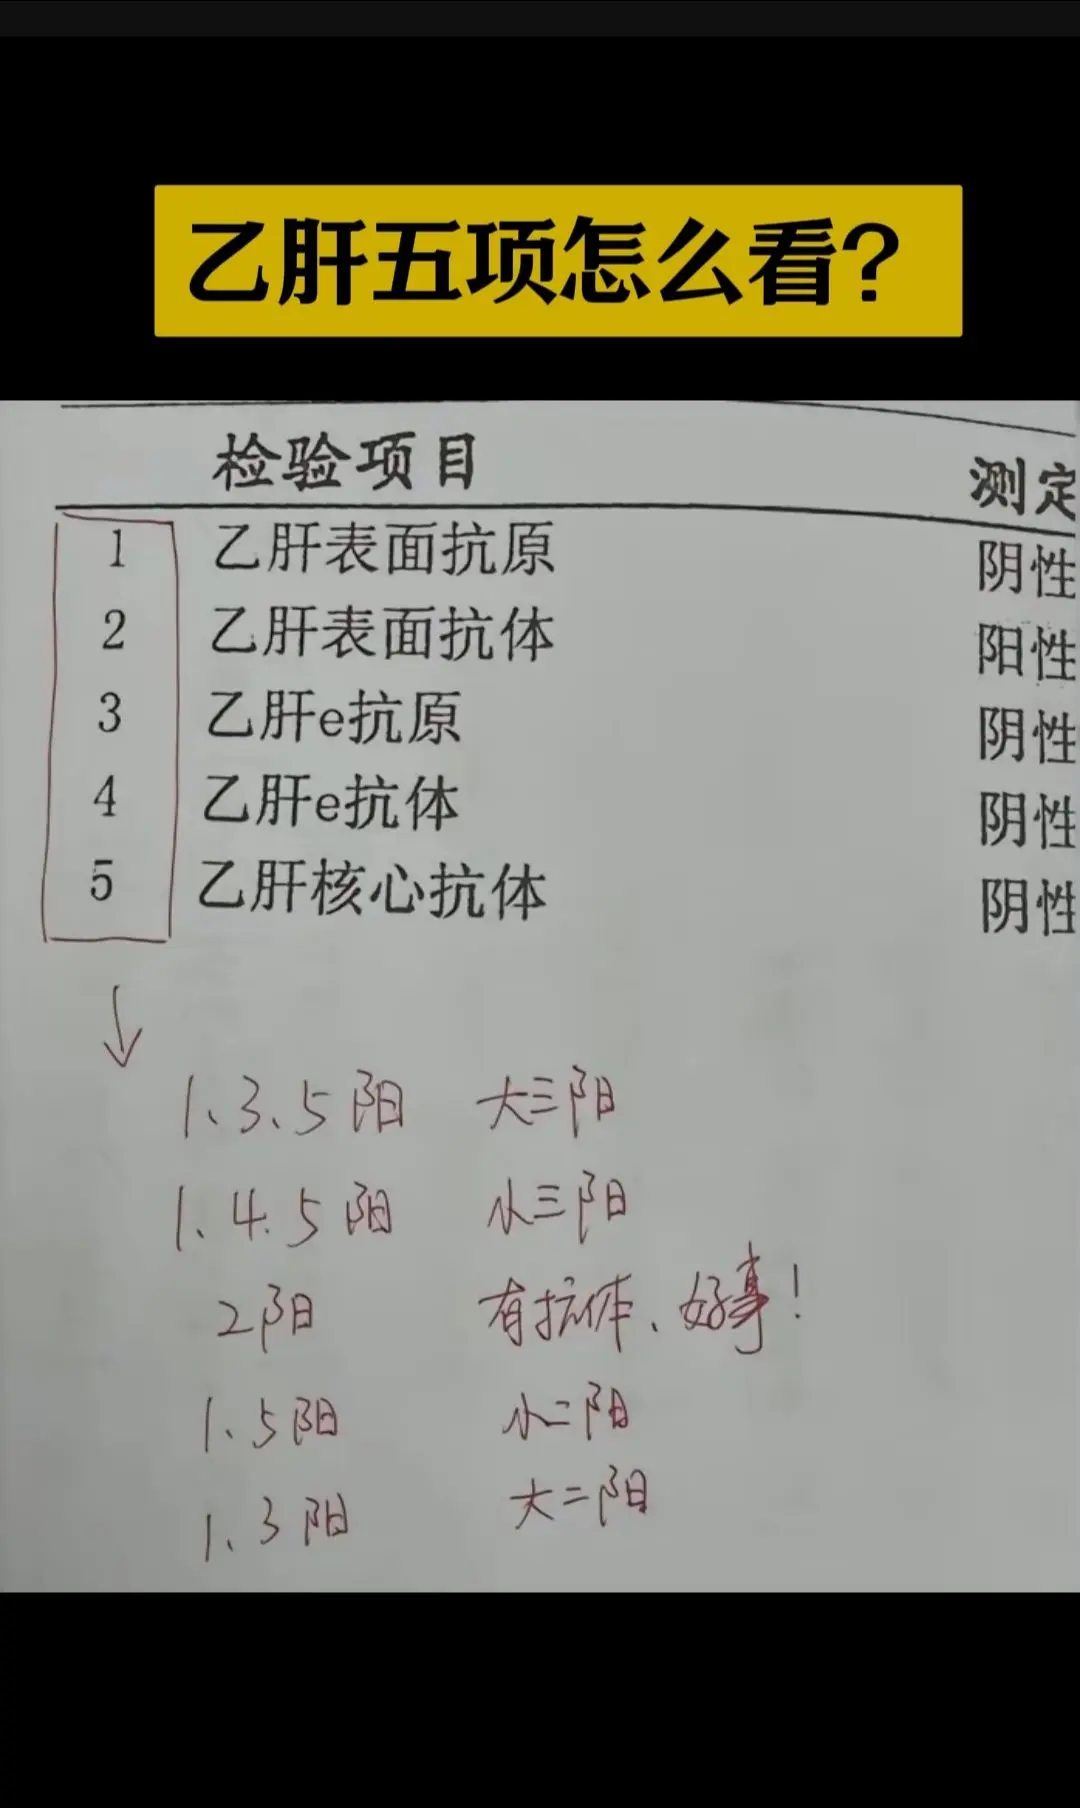 乙肝五项怎么看?
检验项目 测定
1 乙肝表面抗原 阴性
2 乙肝表面抗体 阳性
3 乙肝e抗原 阴性
4 乙肝e抗体 阴性
5 乙肝核心抗体 阴性
1、3、5阳 大三阳
1、4、5阳 小三阳
2阳 有抗体、好事!
1、5阳 小二阳
1、3阳 大二阳